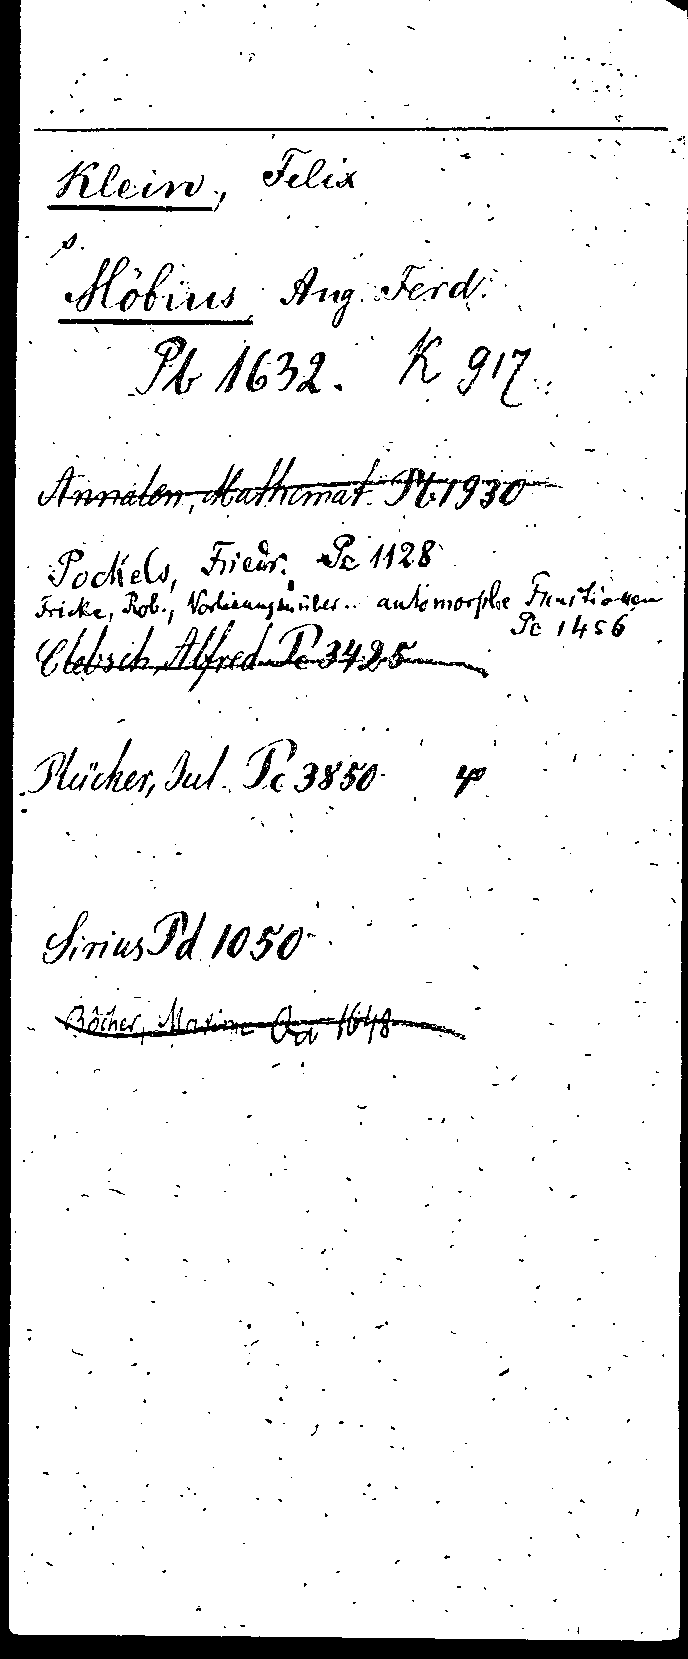 Klein, Felix
s.
Möbius, Aug. Ferd.
Pb 1632. K 917.
Annalen, Mathemat. Pb 1930
Pockels, Friedr. Pc 1128
Fricke, Rob., Vorlesungen über.. automorphe Functionen
Pc 1456
Clebsch, Alfred Pc 3425
Plücker, Jul. Pc 3850
Sirius Pd 1050
Bôcher, Maxime Qa 1648